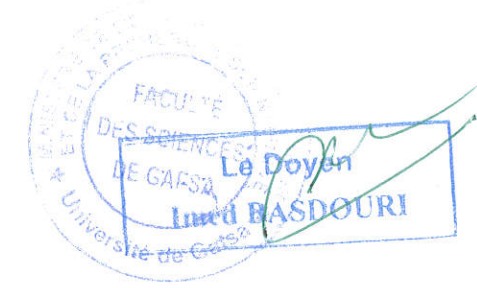 FACULTÉ
DES SCIENCES
DE GAFSA
Université de Gafsa
Le Doyen
Imed BASDOURI